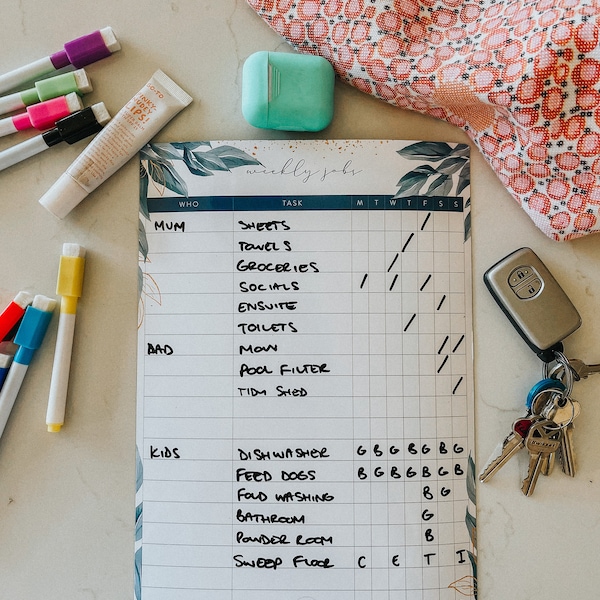 weekly jobs
WHO TASK M T W T F S S
MUM SHEETS /
TOWELS /
GROCERIES /
SOCIALS / / /
ENSUITE /
TOILETS /
DAD MOW / /
POOL FILTER /
TIDY SHED /
KIDS DISHWASHER G B G B G B G
FEED DOGS B G B G B G B
FOLD WASHING B G
BATHROOM G
POWDER ROOM B
SWEEP FLOOR C E T I